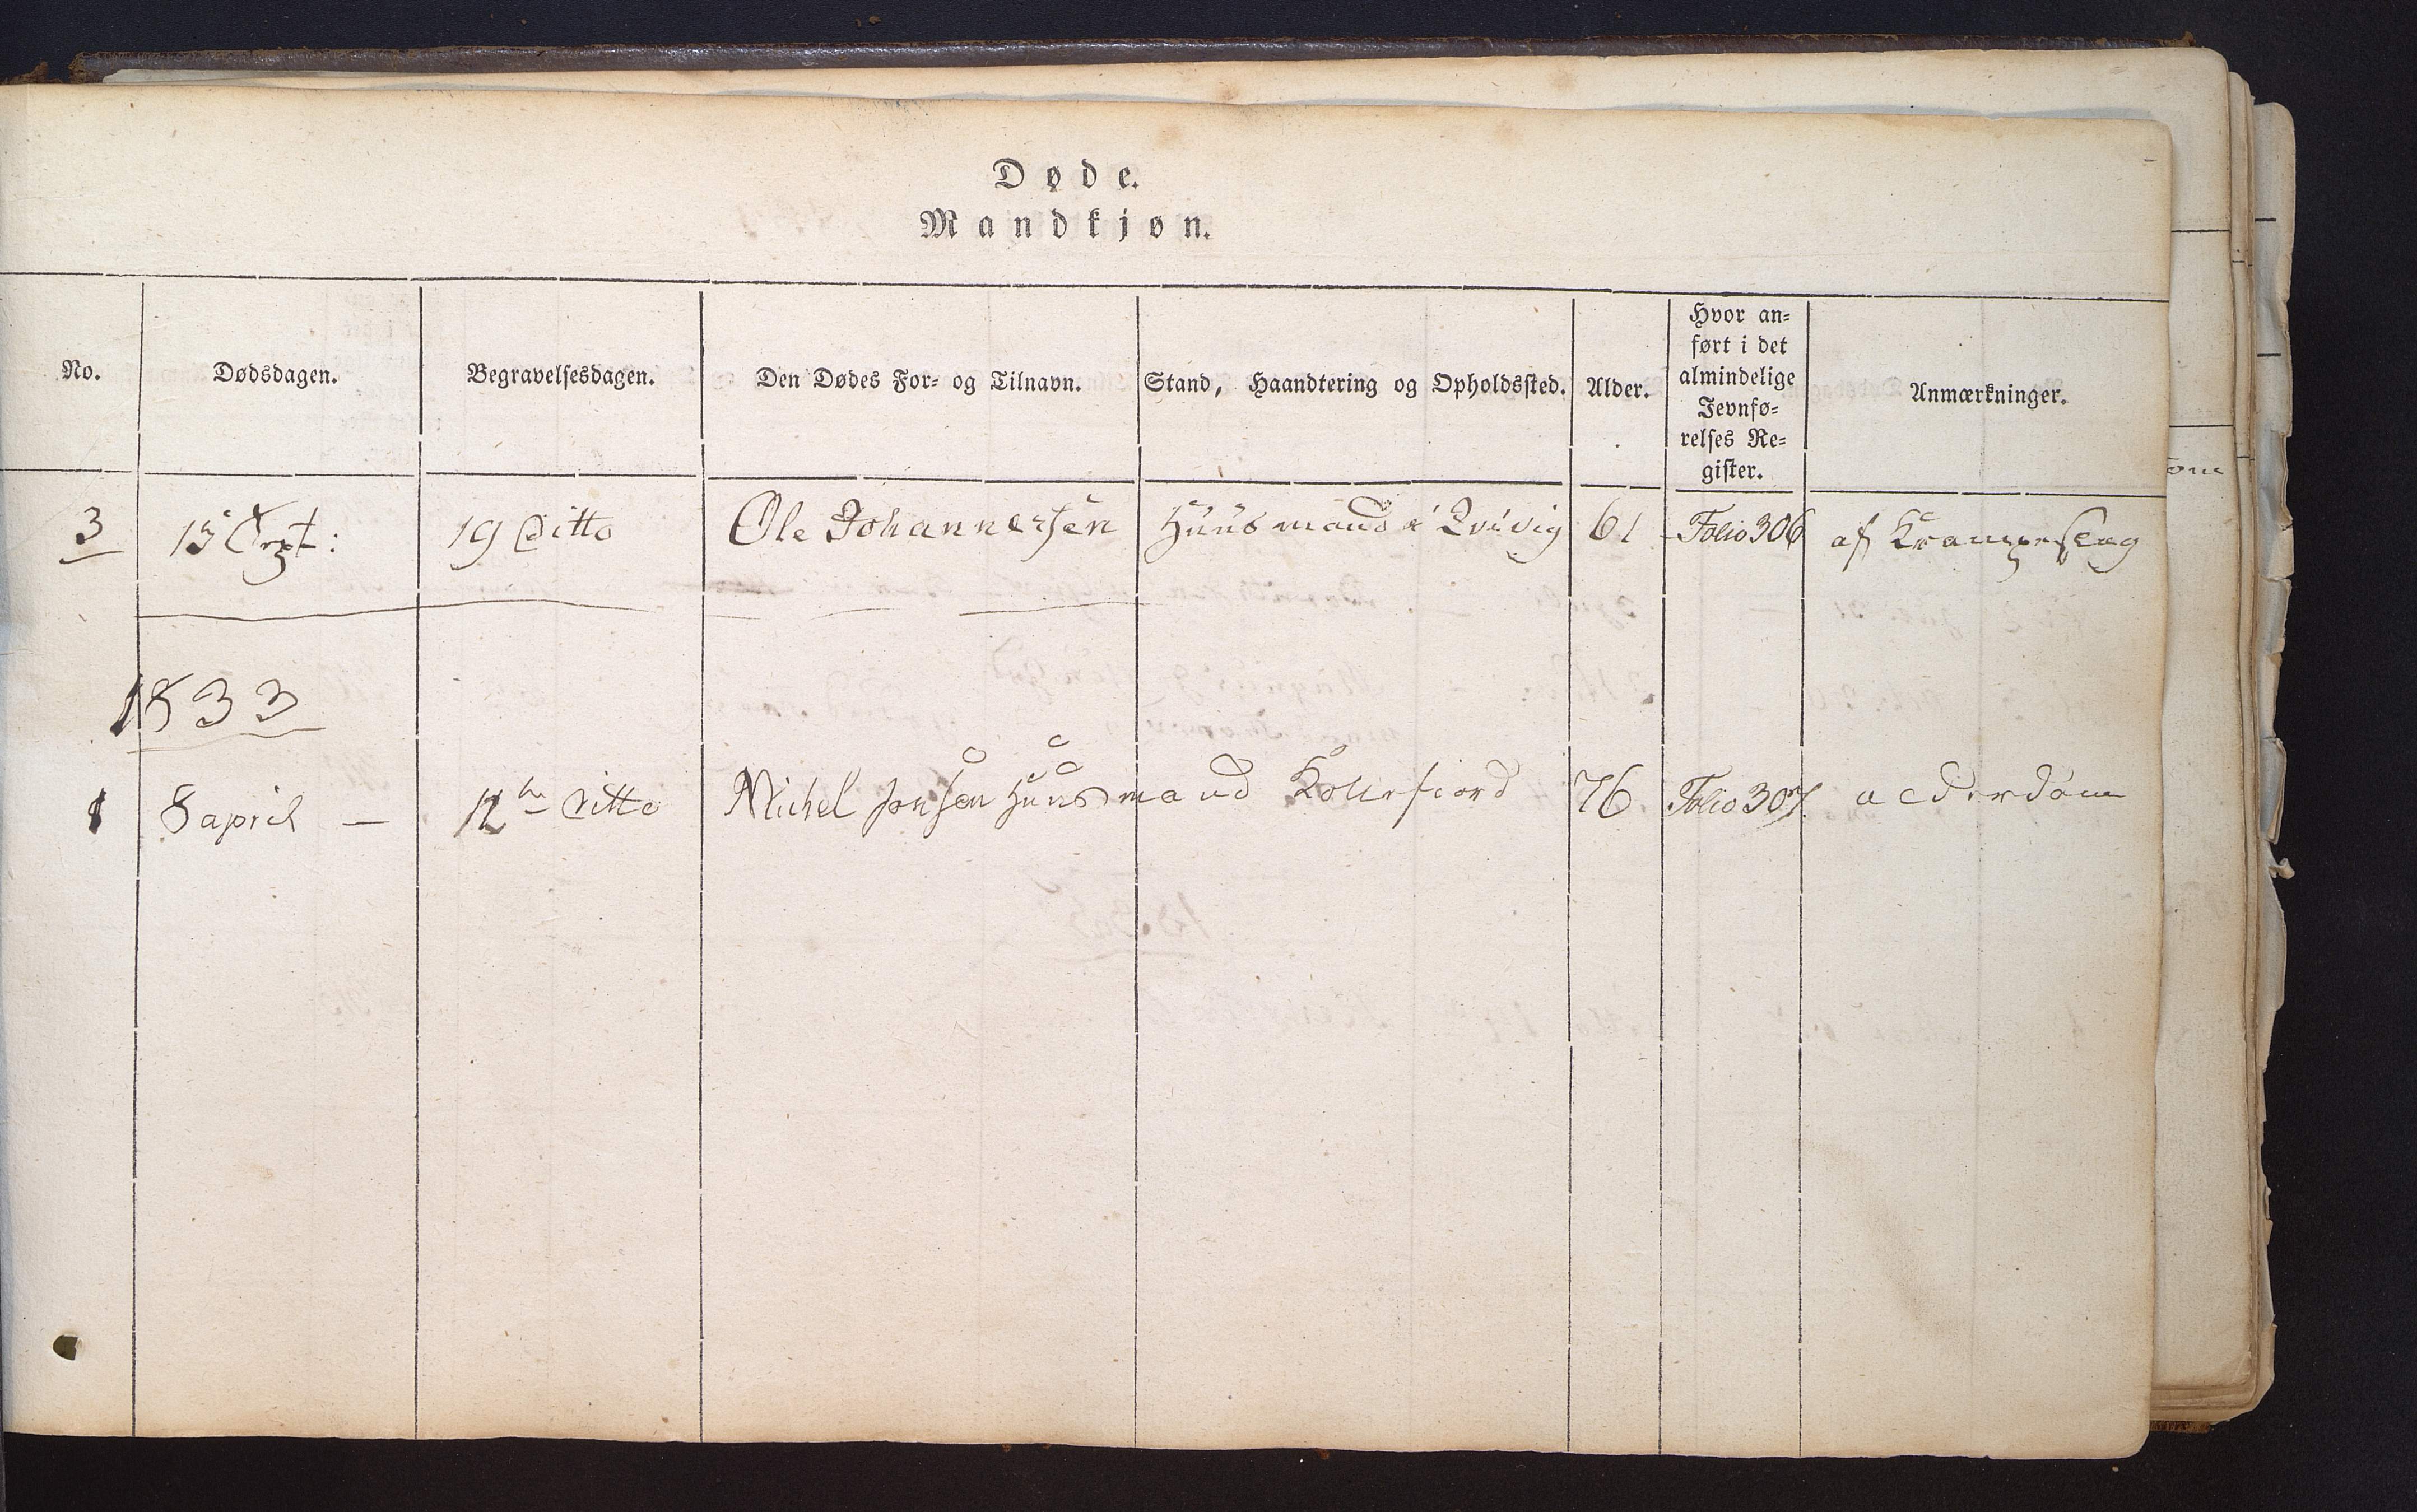 Døde.
Mandkjøn.
No. Dødsdagen. Begravelsesdagen. Den Dødes For- og Tilnavn. Stand, Haandtering og Opholdssted. Alder. Hvor an=
ført i det
almindelige
Jevnfø=
relses Re=
gister. Anmærkninger.
3 15 19 Ditto Ole Johannersen Huusmand i Qvivig 61 Folio 306 af
1833
1 8 april — 12te Ditto Michel Jonsen Huusmand Kollefiord 76 Folio 307. alderdom